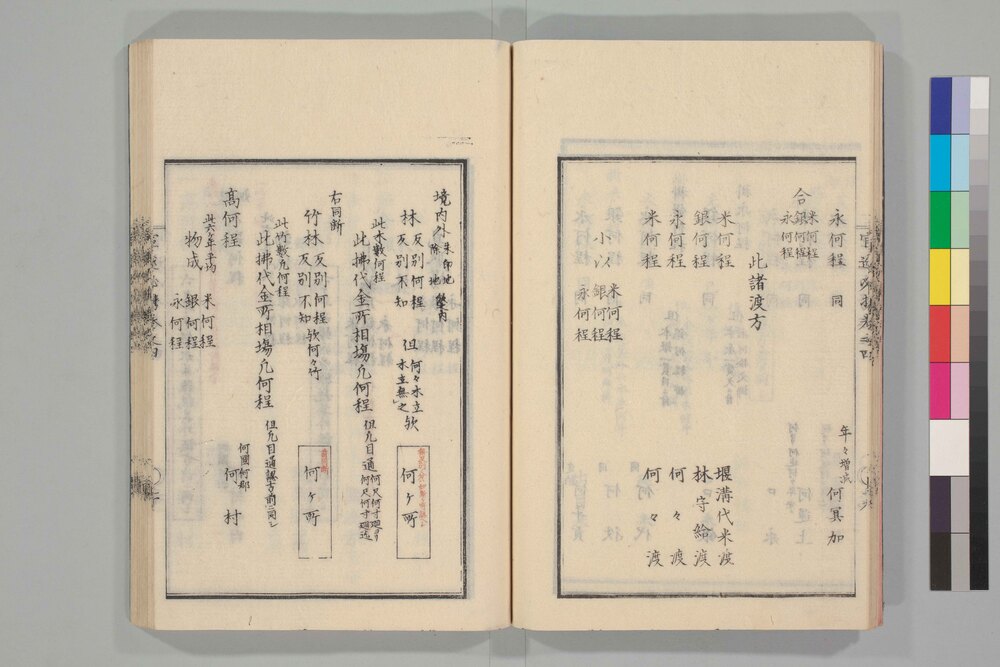 永何程 同 年々増減 何冥加
合 米何程
銀何程
永何程
此諸渡方
米何程 堰溝代米渡
銀何程 林守給渡
永何程 何々渡
米何程 何々渡
小以 米何程
銀何程
永何程
境内外 朱印地
除地
林 反別何程
反別不知
但 何々木立欤
木立無之
何ヶ所
此木数何程
此拂代金所相場凡何程 但凡目通 何尺何寸廻ゟ
何尺何寸廻迄
右同断
竹林 反別何程
反別不知 欤何々竹
何ヶ所
此竹数凡何程
此拂代金所相場凡何程
何國何郡
高何程 何村
此六年平均
物成 米何程
銀何程
永何程